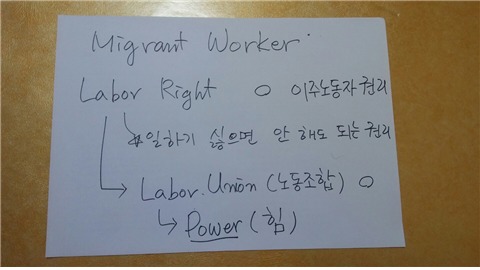 Migrant Worker.
Labor Right ○ 이주노동자 권리
↳ *일하기 싫으면 안 해도 되는 권리
↳ Labor. Union (노동조합) ○
↳ Power (힘)